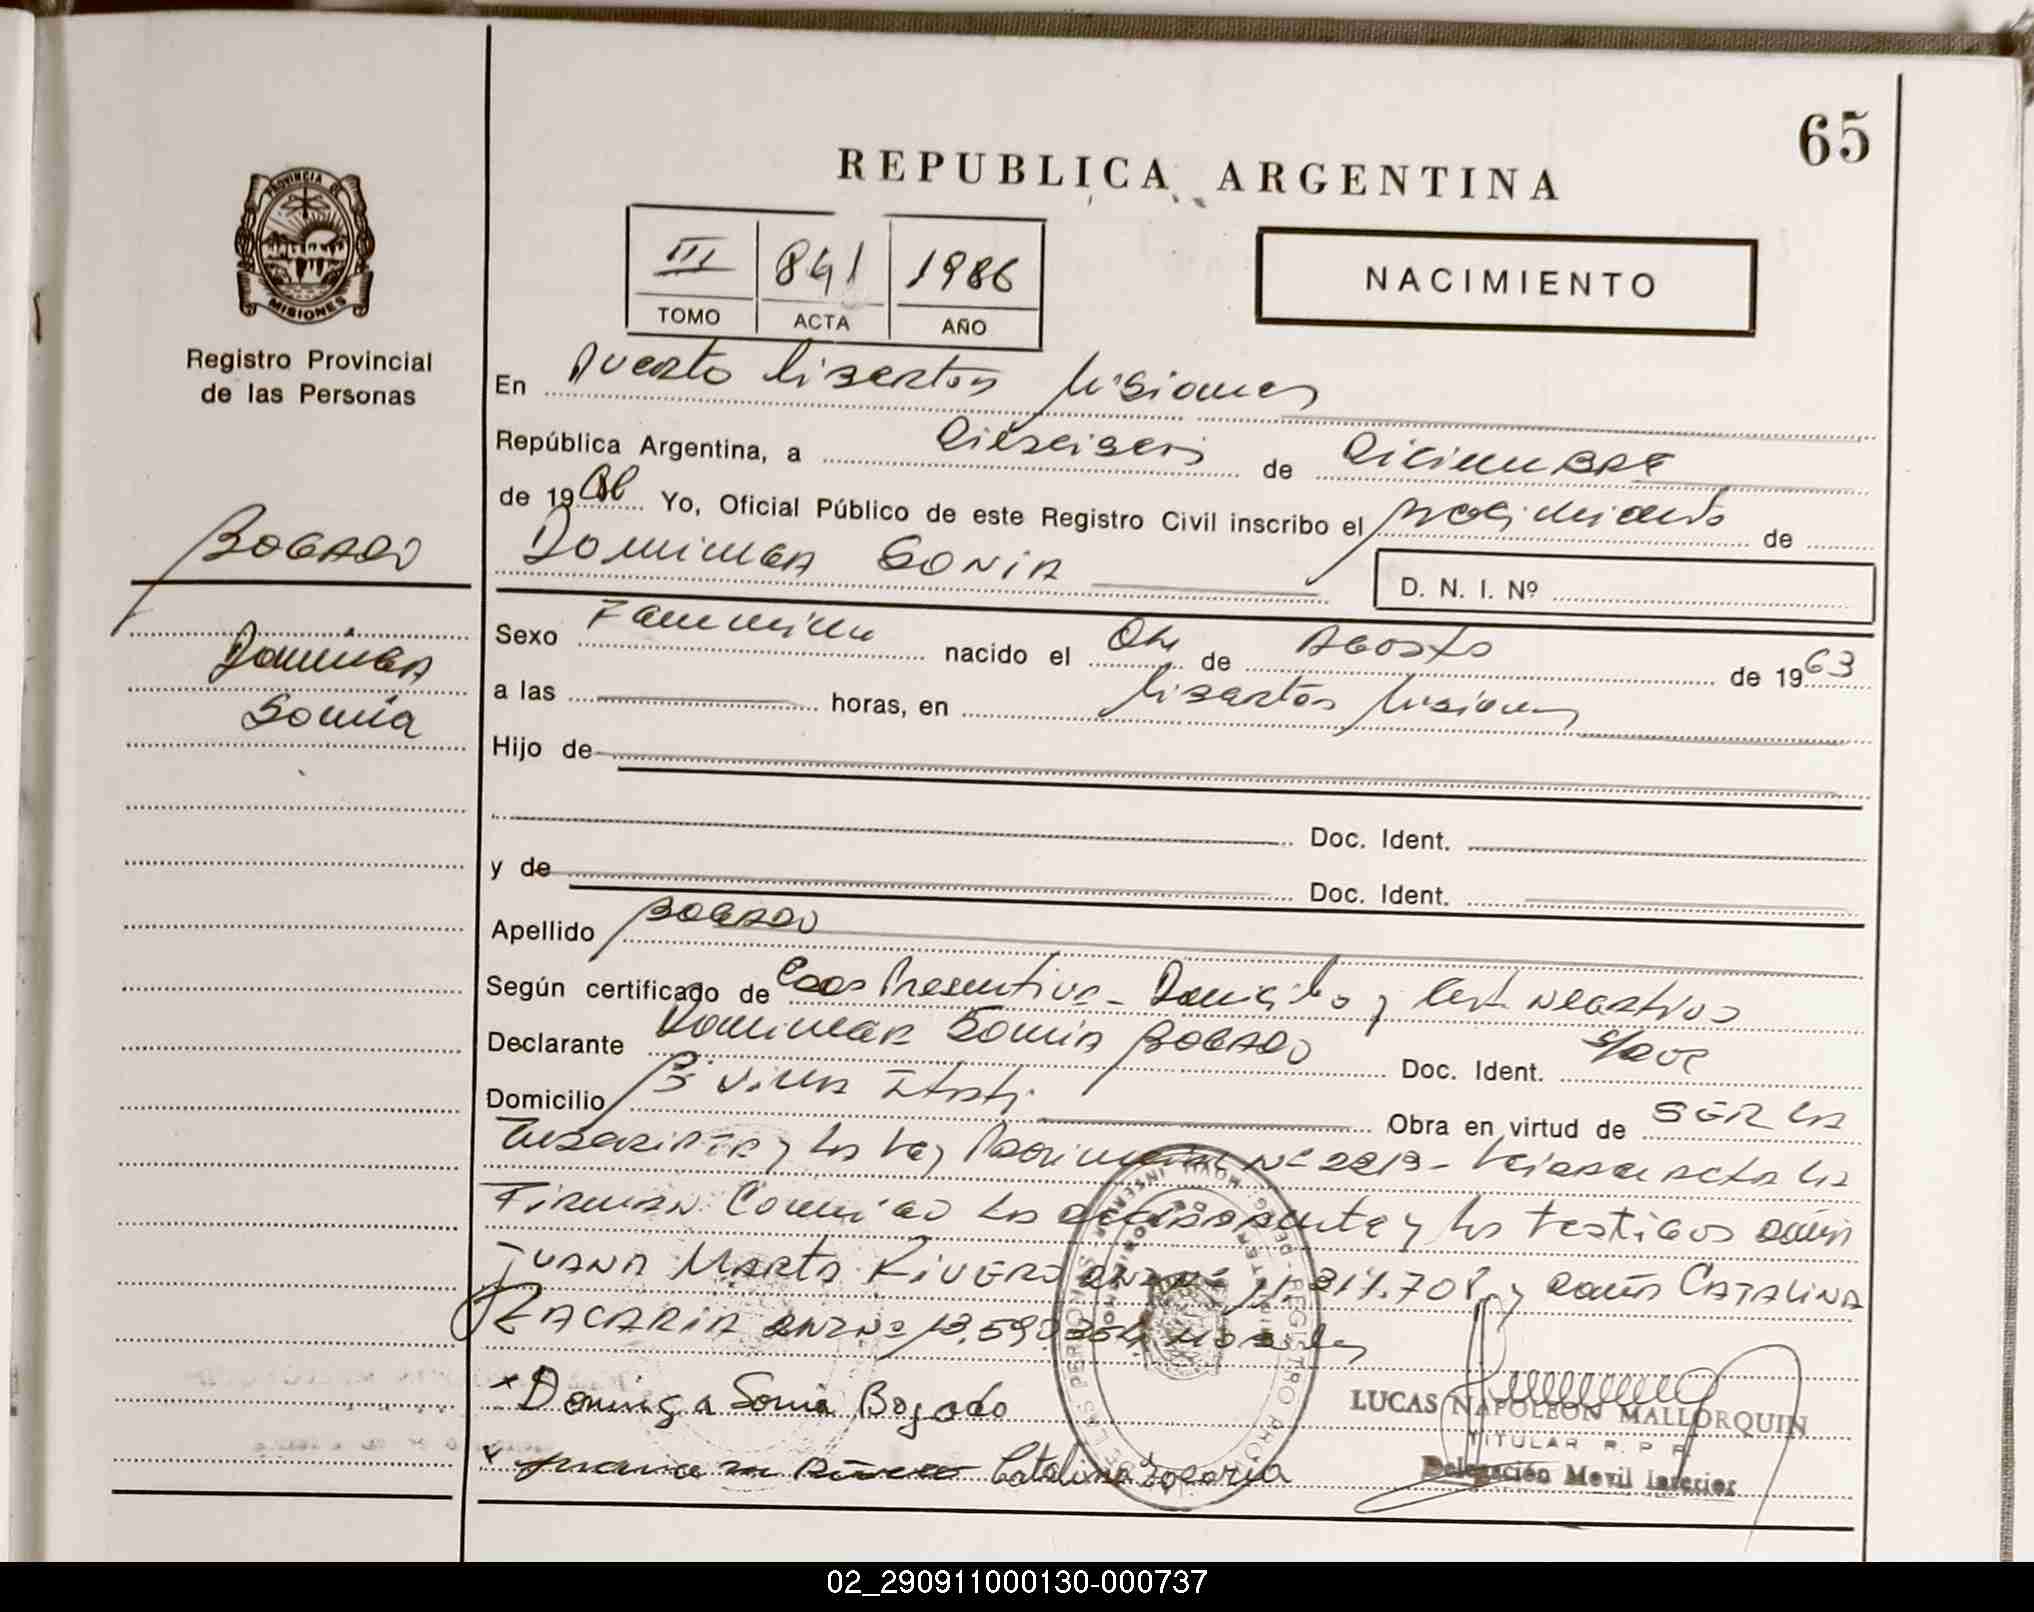 65
REPUBLICA ARGENTINA
PROVINCIA DE
MISIONES
Registro Provincial
de las Personas
III 841 1986
TOMO ACTA AÑO
NACIMIENTO
En Puerto Libertad Misiones
República Argentina, a Dieciseis de Diciembre
de 1986 Yo, Oficial Público de este Registro Civil inscribo el nacimiento de
Dominga Sonia
D. N. I. Nº
BOGADO
Dominga
Sonia
Sexo Femenino nacido el de Agosto de 1963
a las horas, en Libertad Misiones
Hijo de
Doc. Ident.
y de Doc. Ident.
Apellido BOGADO
Según certificado de Edad Presuntiva - Domicilio y Cert Negativo
Declarante Dominga Sonia BOGADO Doc. Ident.
Domicilio Bº Villa Obra en virtud de SER LA
Inscripta y la Ley Provincial Nº 2213 - Leida el acta la
Firman Conmigo la declarante y los testigos doña
JUANA Marta RIVERO DNI Nº 11.314.708 y doña CATALINA
ZACARIA DNI Nº 13.590.354
Dominga Sonia Bogado
Catalina Zacaria
LUCAS NAPOLEON MALLORQUIN
TITULAR R. P. P.
Delegación Movil Interior
02_290911000130-000737